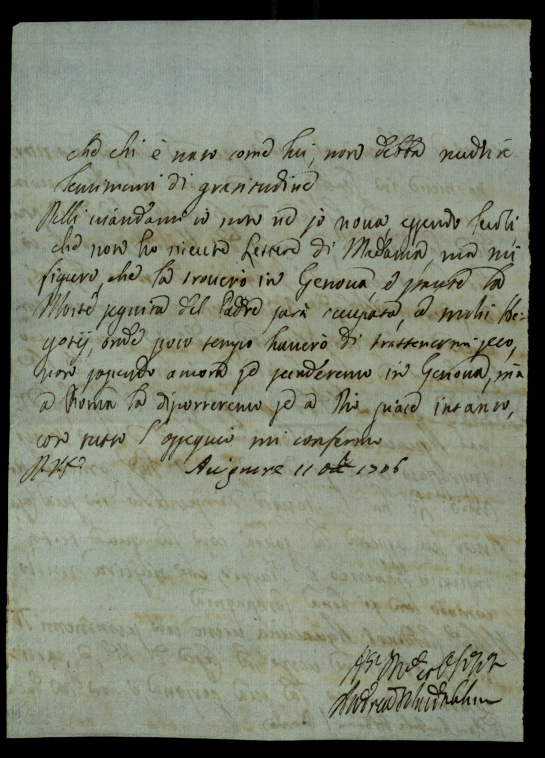 che chi è nato come lui, non debba nudrire
sentimenti di gratitudine
viandami io non ne so nova, essendo
che non ho ricevute Lettere di Madama, ma mi
figuro, che la troverò in Genova e stante la
Morte seguita del Padre sarà occupata, a molti Ne-
gotij, onde poco tempo haverò di trattenermi seco,
non sapendo ancora se in Genova, ma
a Roma la discorreremo se a Dio piace intanto,
con tutto l'ossequio mi confermo
11 1706